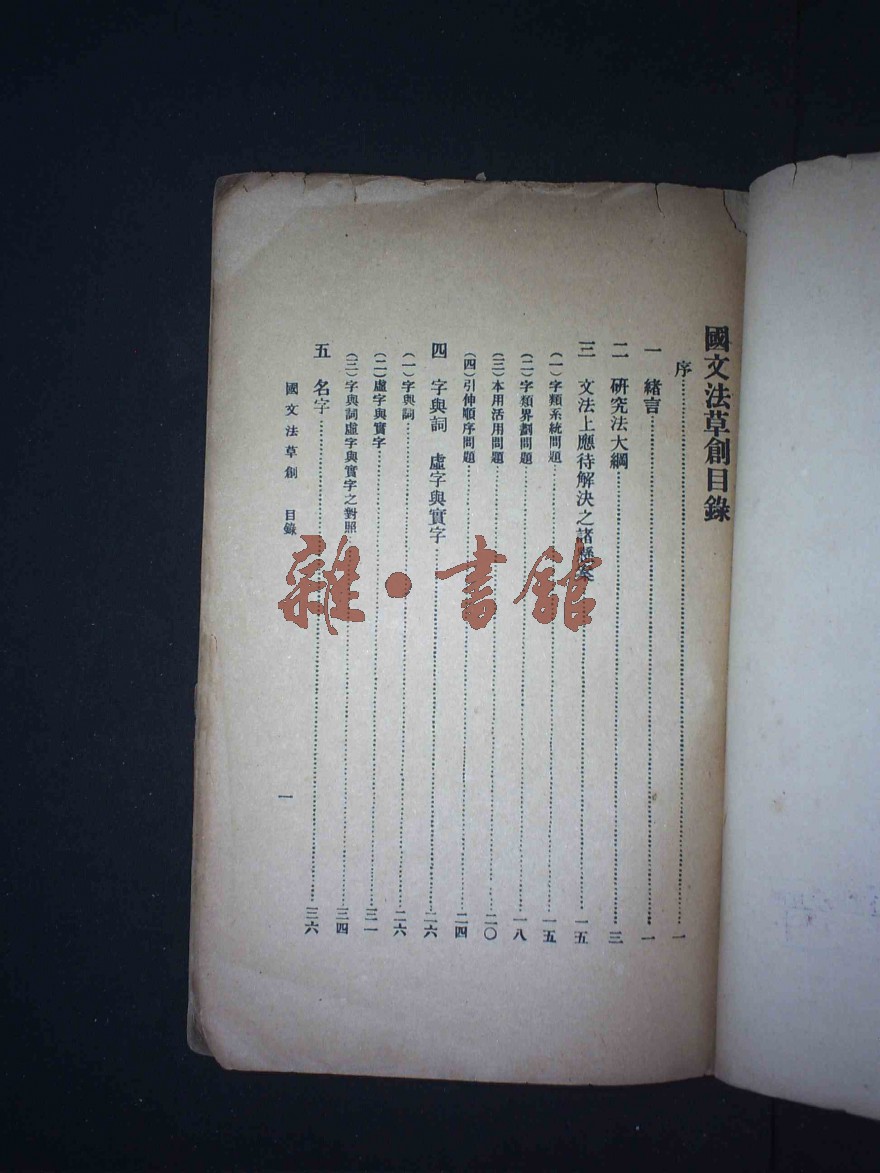 國文法草創目錄
序……一
一 緒言……一
二 研究法大綱……三
三 文法上應待解決之諸懸案……一五
(一)字類系統問題……一五
(二)字類界劃問題……一八
(三)本用活用問題……二〇
(四)引伸順序問題……二四
四 字與詞 虛字與實字……二六
(一)字與詞……二六
(二)虛字與實字……三一
(三)字與詞虛字與實字之對照……三四
五 名字……三六
國文法草創 目錄
一
雜·書館